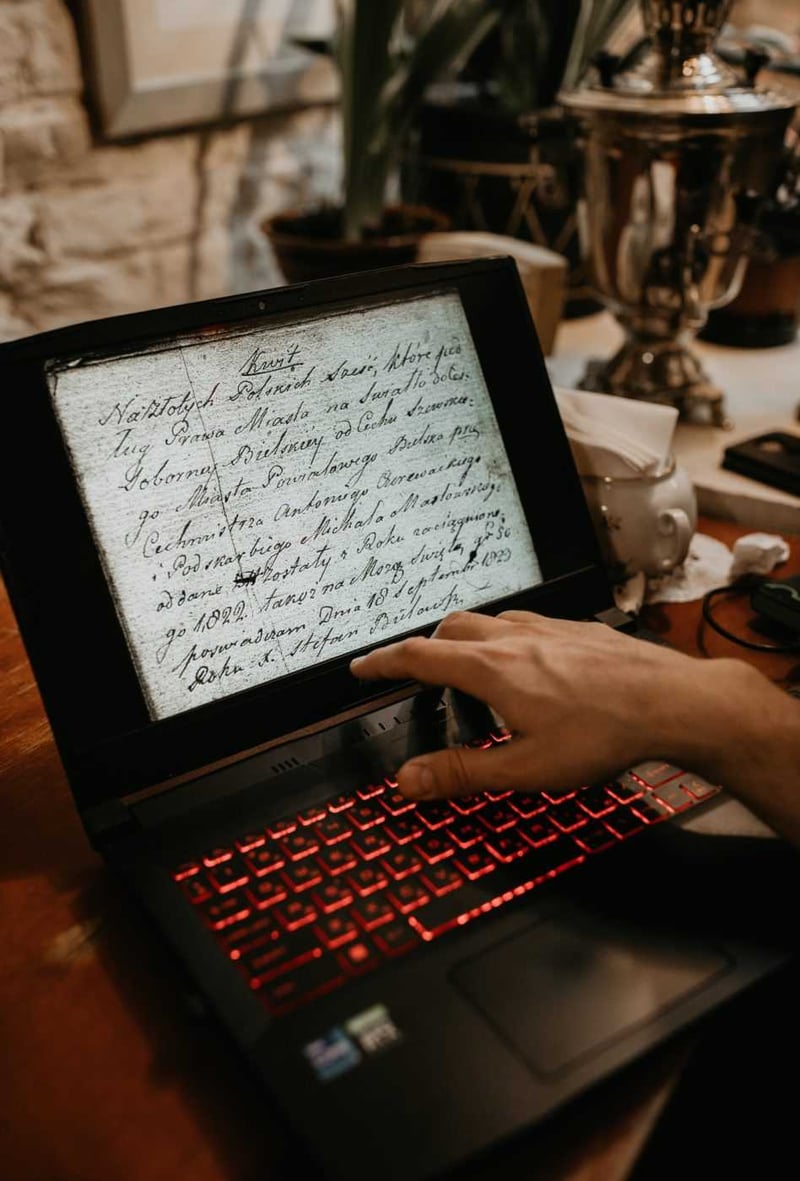 Kwit
Na Złotych Polskich sześć, które pod
ług Prawa Miasta na Swiatło do
Soborney Bielskiey od Cechu Szewskie-
go Miasta Powiatowego Bielska przez
Cechmistrza Antoniego
i Podskarbiego Michała Masłowskiego
oddane zostały z Roku
go 1822. takoż na Mszą Swiętę gr. 56
poswiadczam Dnia 18 Septembra 1823
Roku X. Stefan